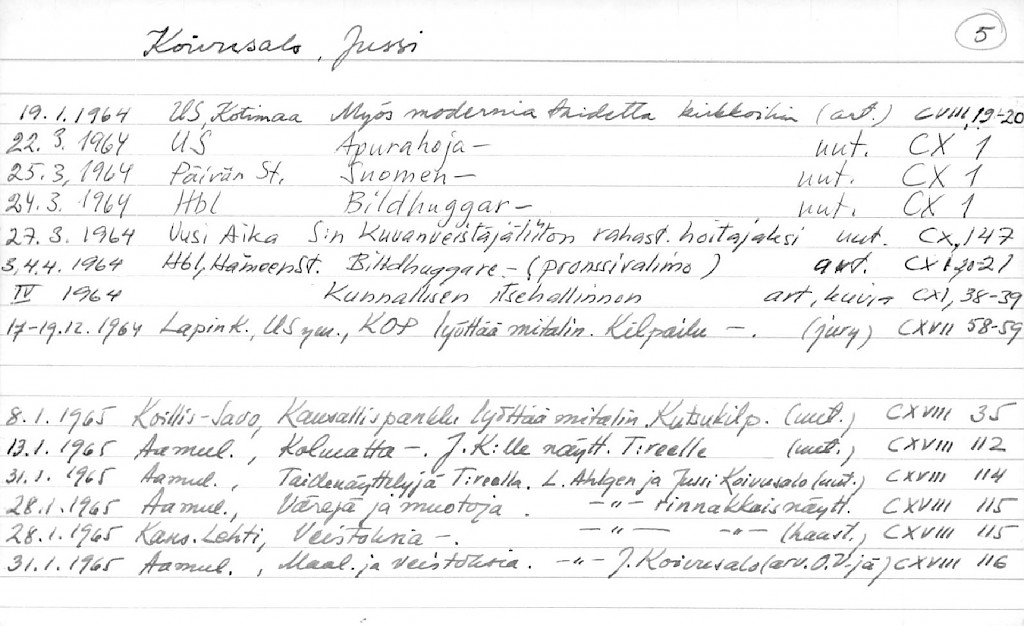 Koivusalo, Jussi 5
19.1.1964 US, Kotimaa Myös modernia taidetta kirkkoihin (art.) CVIII, 19-20
22.3.1964 US Apurahoja- uut. CX 1
25.3.1964 Päivän St. Suomen- uut. CX 1
24.3.1964 Hbl Bildhuggar- uut. CX 1
27.3.1964 Uusi Aika S:n Kuvanveistäjäliiton rahast.hoitajaksi uut. CX, 147
3,4.4.1964 Hbl, HämeenSt. Bildhuggare.- (pronssivalimo) art. CXI 20-21
IV 1964 Kunnallisen itsehallinnon art, kuvia CXI, 38-39
17-19.12.1964 Lapin K., US ym., KOP lyöttää mitalin. Kilpailu -. (jury) CXVII 58-59
8.1.1965 Koillis-Savo, Kansallispankki lyöttää mitalin. Kutsukilp. (uut.) CXVIII 35
13.1.1965 Aamul., Kolmatta-. J.K:lle näytt. T:reelle (uut.) CXVIII 112
31.1.1965 Aamul., Taidenäyttelyjä T:reella. L. Ahlgen ja Jussi Koivusalo (uut.) CXVIII 114
28.1.1965 Aamul., Värejä ja muotoja. -"- rinnakkaisnäytt. CXVIII 115
28.1.1965 Kans. Lehti, Veistoksia -. -"- -"- (haast.) CXVIII 115
31.1.1965 Aamul., Maal. ja veistoksia. -"- J. Koivusalo (arv. O.V-jä) CXVIII 116